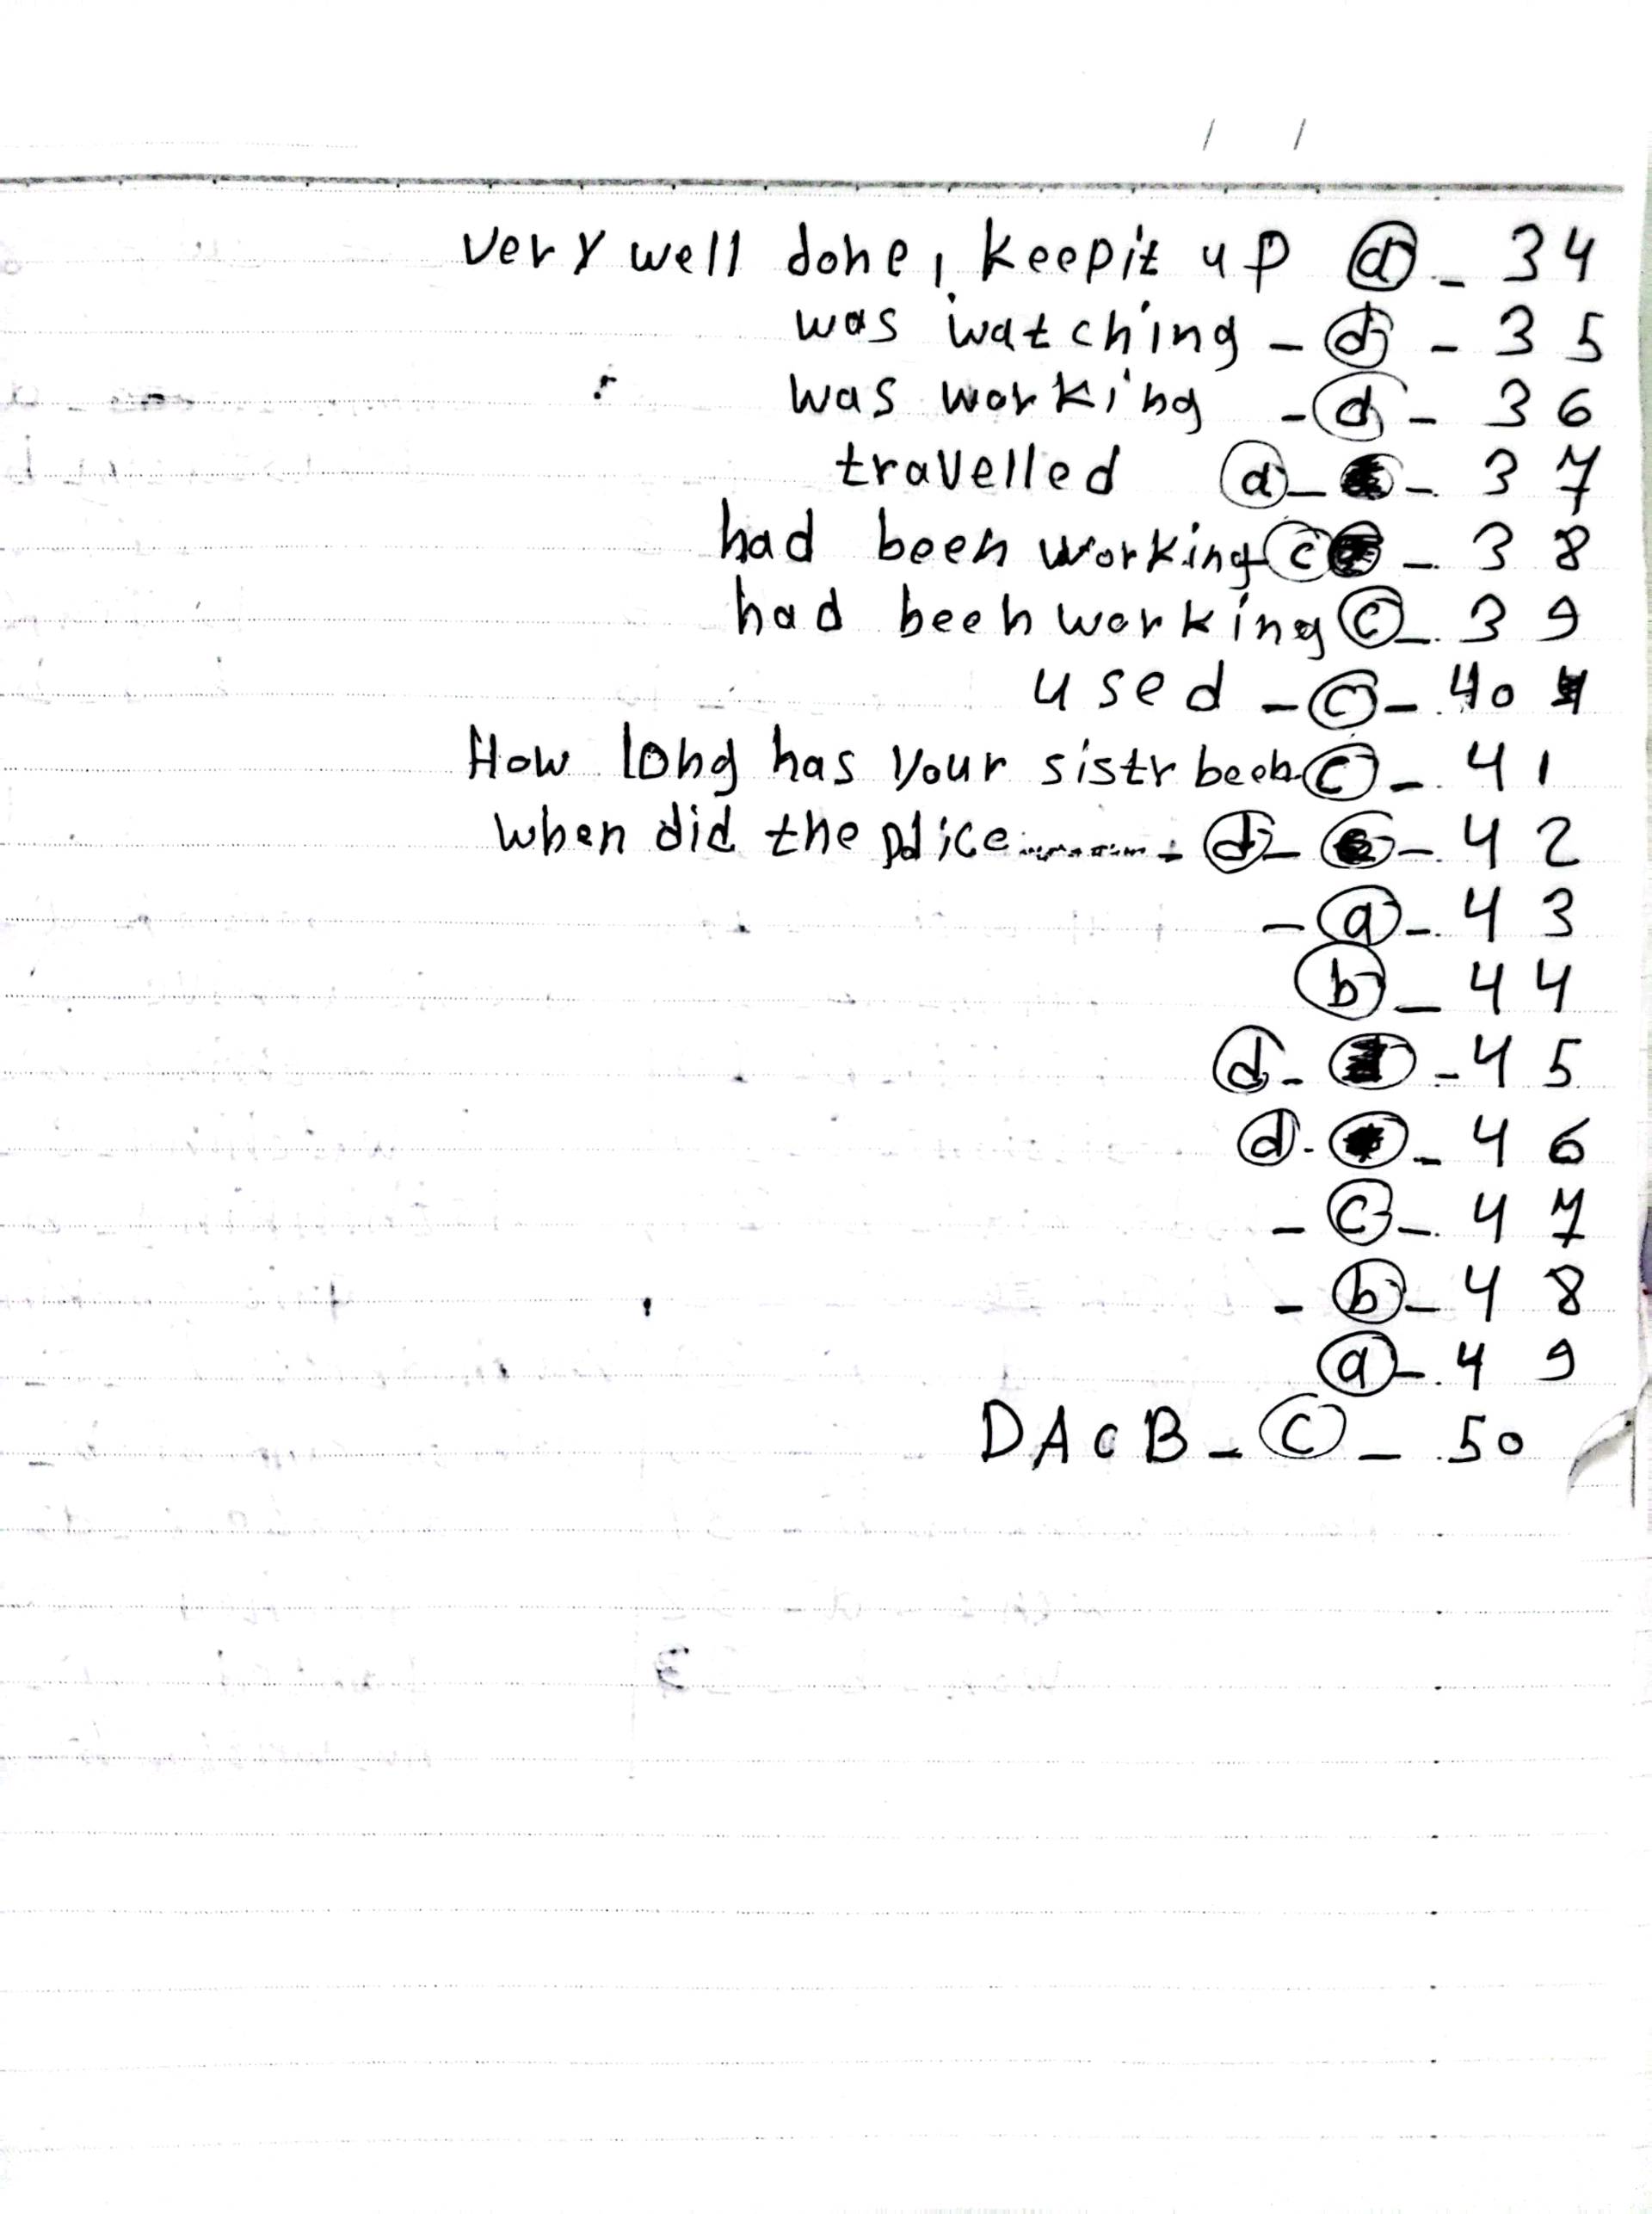 very well done, keep it up ⓓ - 34
was watching - ⓓ - 35
was working - ⓓ - 36
travelled ⓐ - - 37
had been working ⓒ - 38
had been working ⓒ - 39
used - ⓒ - 40
How long has your sistr been ⓒ - 41
when did the police ........ - ⓓ - - 42
- ⓐ - 43
ⓑ - 44
ⓓ - - 45
ⓓ - - 46
- ⓒ - 47
- ⓑ - 48
ⓐ - 49
DACB - ⓒ - 50